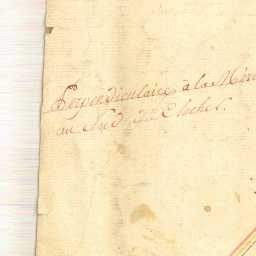 Perpendiculaire à la Méri
au Sud du Clocher.